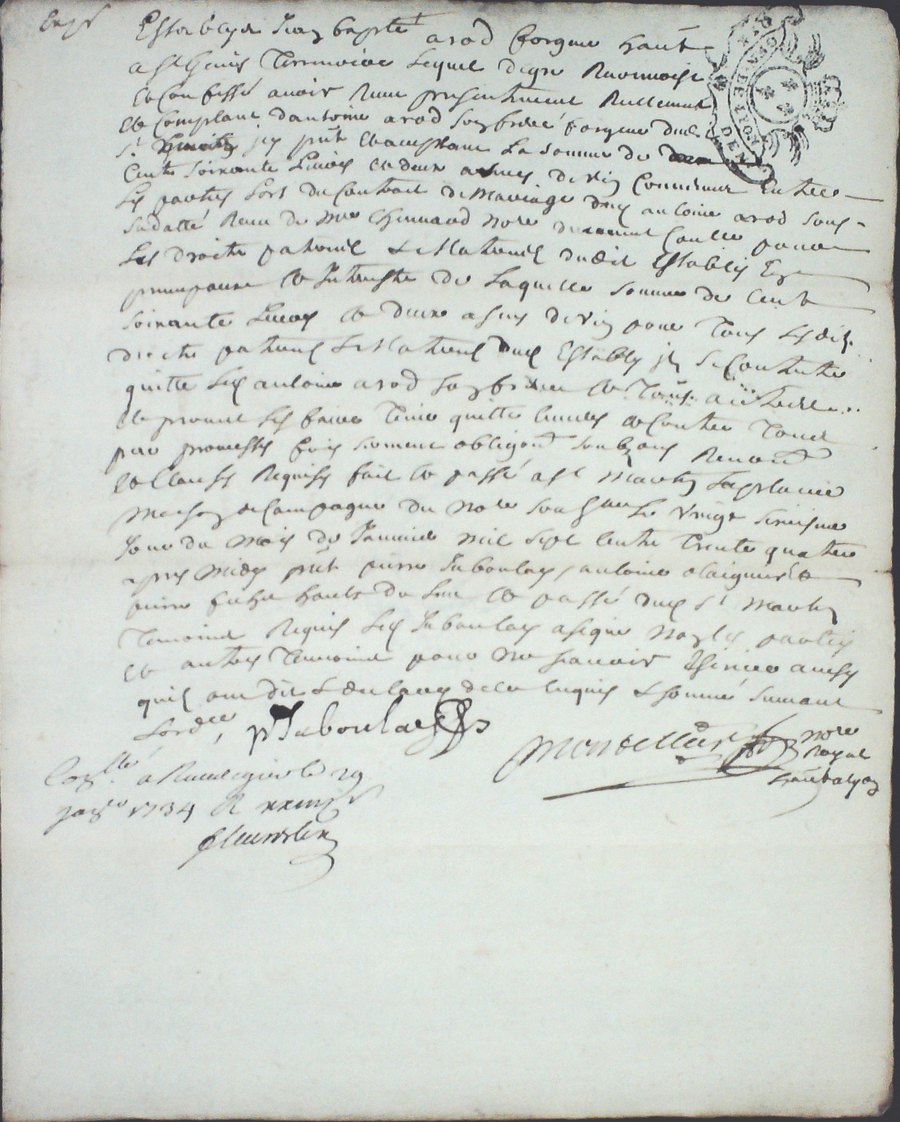 Estably Jean baptiste arod forgeur habt
a St Genis Terrenoire lequel de gre Reconnoist
et Confesse avoir Receu presentement Reellement
et Comptant d'antoine arod son frere forgeur dud
St icy pnt et acceptant La somme de
Cent soixante Livres et deux asnees de vin Convenue Entre
Les parties Lors du Contrait de Mariage dud antoine arod sous
sa datte Receu de Me Chennard nore pour
Les droits paternels & Maternels dudit Estably En
principaux et Interests de Laquelle somme de Cent
soixante Livres et deux asnees de vin pour Tous Lesdits
droits paternels & Maternels dud Estably il se Contente
quitte led antoine arod son frere et Tous autres
et promet Les faire Tenir quitte envers et Contre Tous
par promesses foix serment obligaons soubons Renonons
et Clauses Requises fait et passé a St Martin Laplaine
Maison de Campagne du nore sousne Le Vingt sixiesme
Jour du mois de Janvier mil sept Cents Trente quatre
apres midy pnt pierre Juboulay, antoine
pierre habts du Lieu et passé dud St Martin
Temoins Requis Led Juboulay a signe Non les parties
et autres Temoins pour ne sçavoir Escrire ainsy
quils ont dit & declaré de ce Enquis & sommé suivant
Lordce P. Juboulay
nore
Royal
hérédital
Conllé a Rivedegier le 29
janer 1734 R
DE LYON
DEN